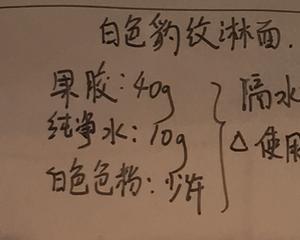 白色豹纹淋面.
果胶: 40g
纯净水: 10g
白色色粉: 少许
隔水
△ 使用